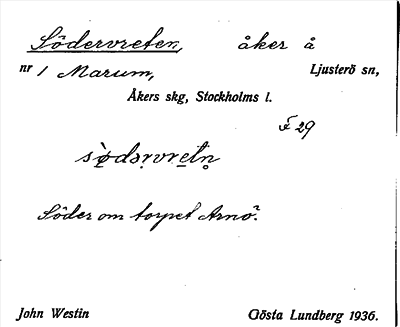 Södervreten, åker å
nr 1 Marum, Ljusterö sn,
Åkers skg, Stockholms l.
F 29
Söder om torpet Arnö.
John Westin Gösta Lundberg 1936.